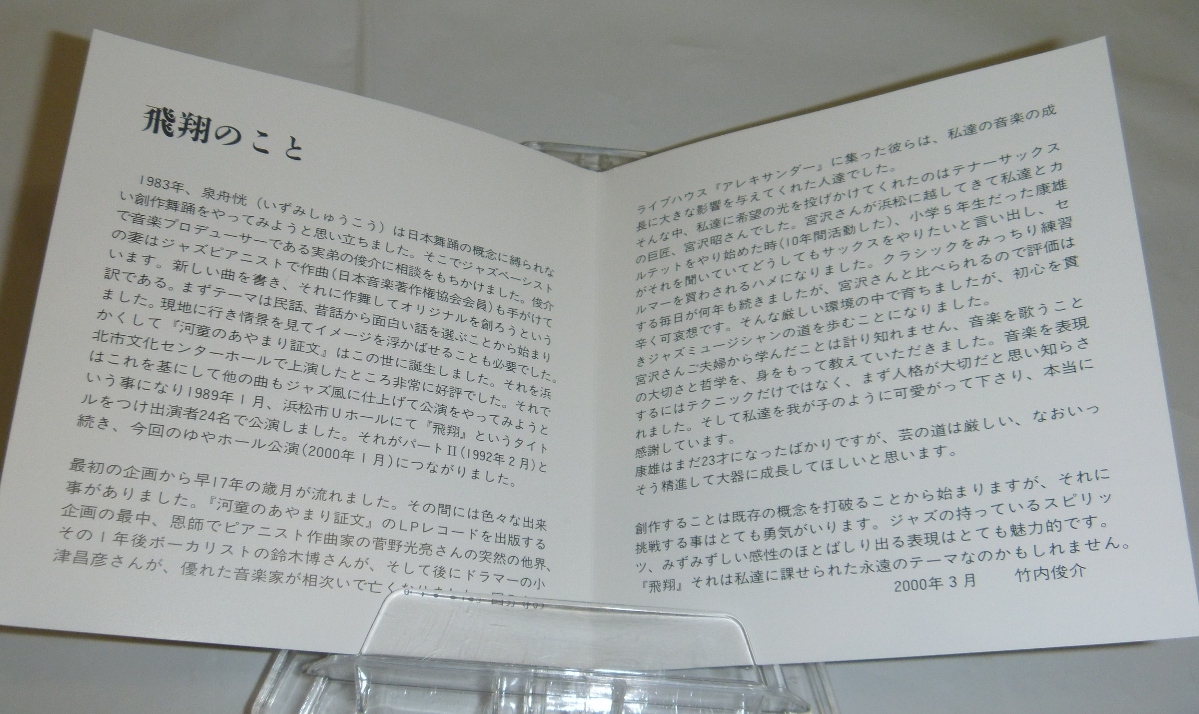 飛翔のこと
1983年、泉舟恍（いずみしゅうこう）は日本舞踊の概念に縛られな
い創作舞踊をやってみようと思い立ちました。そこでジャズベーシスト
で音楽プロデューサーである実弟の俊介に相談をもちかけました。俊介
の妻はジャズピアニストで作曲(日本音楽著作権協会会員)も手がけて
います。新しい曲を書き、それに作舞してオリジナルを創ろうという
訳である。まずテーマは民話、昔話から面白い話を選ぶことから始まり
ました。現地に行き情景を見てイメージを浮かばせることも必要でした。
かくして『河童のあやまり証文』はこの世に誕生しました。それを浜
北市文化センターホールで上演したところ非常に好評でした。それで
はこれを基にして他の曲もジャズ風に仕上げて公演をやってみようと
いう事になり1989年1月、浜松市Uホールにて『飛翔』というタイト
ルをつけ出演者24名で公演しました。それがパートII(1992年2月)と
続き、今回のゆやホール公演(2000年1月)につながりました。
最初の企画から早17年の歳月が流れました。その間には色々な出来
事がありました。『河童のあやまり証文』のLPレコードを出版する
企画の最中、恩師でピアニスト作曲家の菅野光亮さんの突然の他界、
その1年後ボーカリストの鈴木博さんが、そして後にドラマーの小
津昌彦さんが、優れた音楽家が相次いで亡くなりました。
ライブハウス『アレキサンダー』に集った彼らは、私達の音楽の成
長に大きな影響を与えてくれた人達でした。
そんな中、私達に希望の光を投げかけてくれたのはテナーサックス
の巨匠、宮沢昭さんでした。宮沢さんが浜松に越してきて私達とカ
ルテットをやり始めた時(10年間活動した)、小学5年生だった康雄
がそれを聞いていてどうしてもサックスをやりたいと言い出し、セ
ルマーを買わされるハメになりました。クラシックをみっちり練習
する毎日が何年も続きましたが、宮沢さんと比べられるので評価は
辛く可哀想です。そんな厳しい環境の中で育ちましたが、初心を貫
きジャズミュージシャンの道を歩むことになりました。
宮沢さんご夫婦から学んだことは計り知れません、音楽を歌うこと
の大切さと哲学を、身をもって教えていただきました。音楽を表現
するにはテクニックだけではなく、まず人格が大切だと思い知らさ
れました。そして私達を我が子のように可愛がって下さり、本当に
感謝しています。
康雄はまだ23才になったばかりですが、芸の道は厳しい、なおいっ
そう精進して大器に成長してほしいと思います。
創作することは既存の概念を打破することから始まりますが、それに
挑戦する事はとても勇気がいります。ジャズの持っているスピリッ
ツ、みずみずしい感性のほとばしり出る表現はとても魅力的です。
『飛翔』それは私達に課せられた永遠のテーマなのかもしれません。
2000年3月　竹内俊介